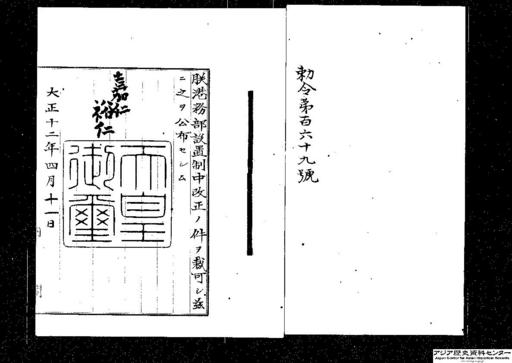 勅令第百六十九號
朕港務部設置制中改正ノ件ヲ裁可シ茲
ニ之ヲ公布セシム
嘉仁
裕仁
天皇
御璽
大正十二年四月十一日
アジア歴史資料センター
Japan Center for Asian Historical Records